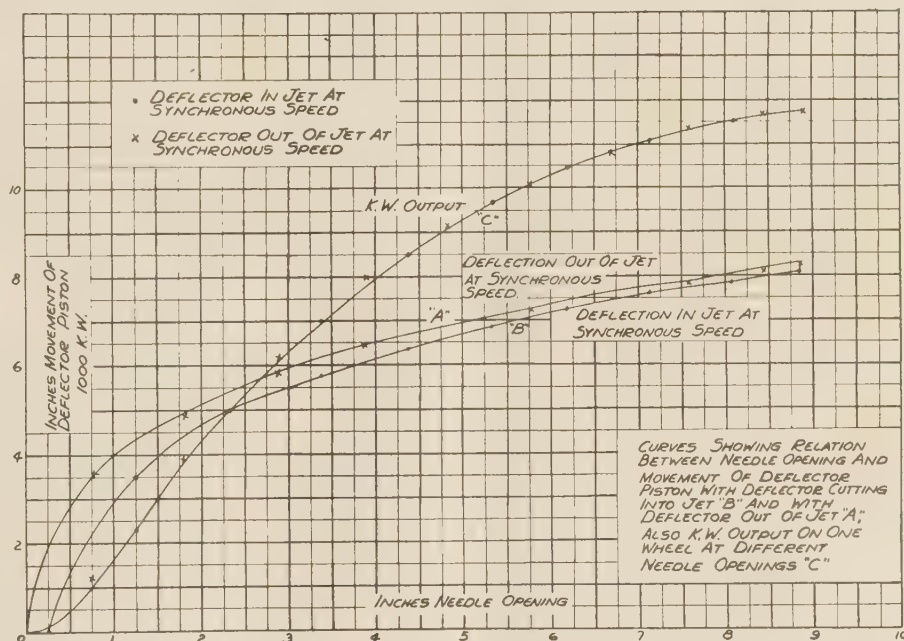 • DEFLECTOR IN JET AT
SYNCHRONOUS SPEED
x DEFLECTOR OUT OF JET AT
SYNCHRONOUS SPEED
10
K.W. OUTPUT
"C"
DEFLECTION OUT OF JET
AT SYNCHRONOUS
SPEED.
8
"A"
"B"
DEFLECTION IN JET AT
SYNCHRONOUS SPEED
INCHES MOVEMENT OF
DEFLECTOR PISTON
1000 K.W.
6
4
2
CURVES SHOWING RELATION
BETWEEN NEEDLE OPENING AND
MOVEMENT OF DEFLECTOR
PISTON WITH DEFLECTOR CUTTING
INTO JET "B" AND WITH
DEFLECTOR OUT OF JET "A",
ALSO K.W. OUTPUT ON ONE
WHEEL AT DIFFERENT
NEEDLE OPENINGS "C"
INCHES NEEDLE OPENING
0 1 2 3 4 5 6 7 8 9 10